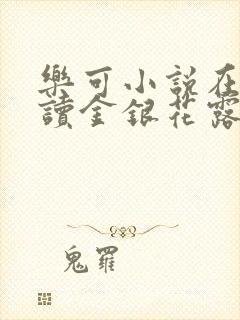 樂可小說在
讀金銀花露
鬼羅